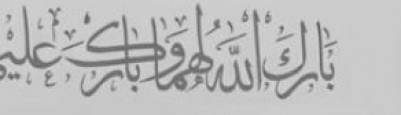 بَارَكَ اللَّهُ لَهُمَا وَبَارَكَ